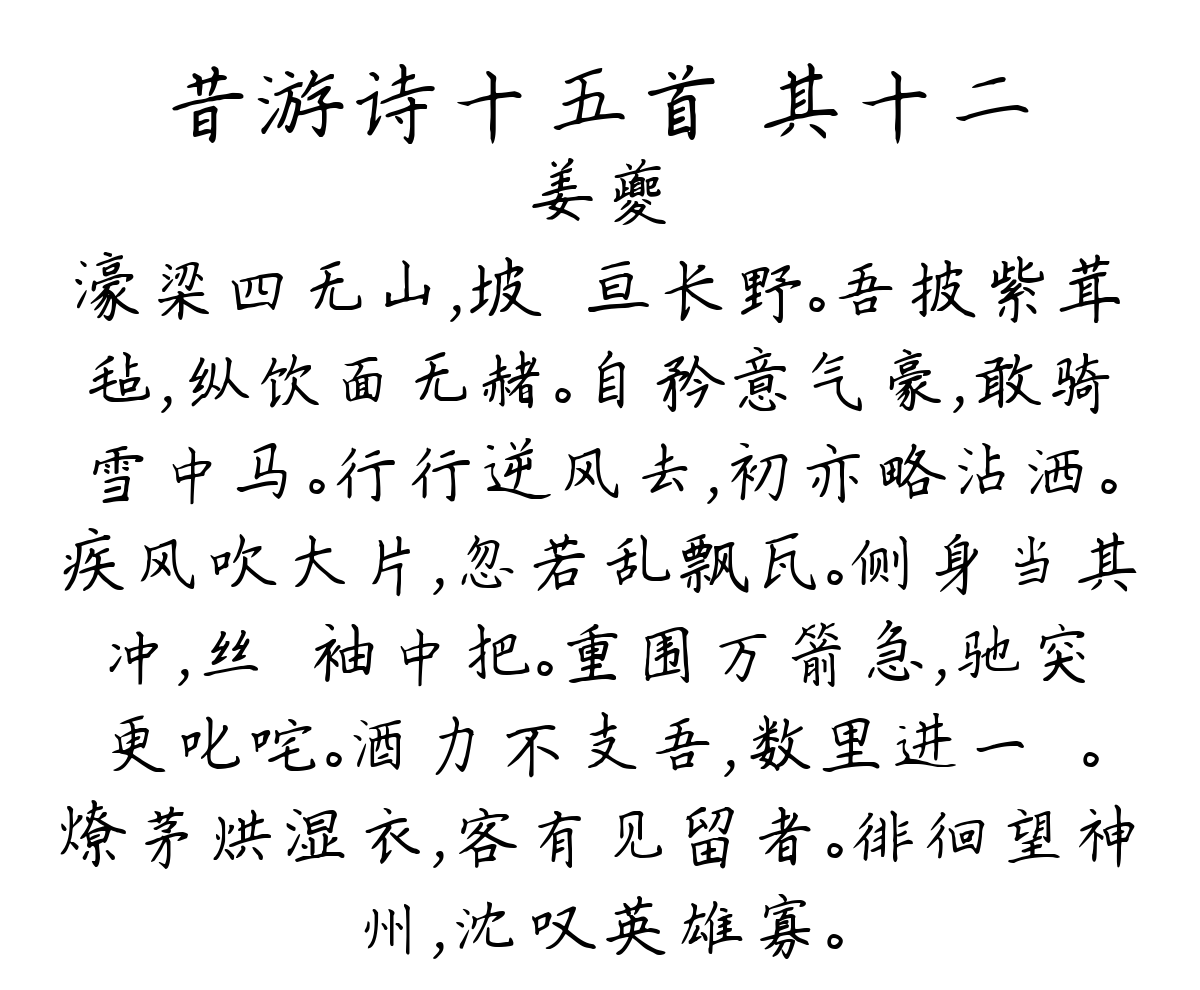 昔游诗十五首 其十二
姜夔
濠梁四无山,坡 亘长野。吾披紫茸
毡,纵饮面无赭。自矜意气豪,敢骑
雪中马。行行逆风去,初亦略沾洒。
疾风吹大片,忽若乱飘瓦。侧身当其
冲,丝 袖中把。重围万箭急,驰突
更叱咤。酒力不支吾,数里进一 。
燎茅烘湿衣,客有见留者。徘徊望神
州,沈叹英雄寡。